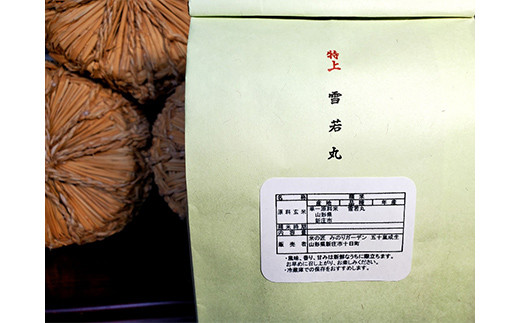 特上
雪若丸
名称 精米
産地 品種 年産
原料玄米 単一原料米 雪若丸
山形県
新庄市
精米時期
内容量
販売者 米の匠 みのりガーデン 五十嵐成生
山形県新庄市十日町
・風味、香り、甘みは新鮮なうちに際立ちます。
お早めに召し上がり、お楽しみください。
・冷蔵庫での保存をおすすめします。